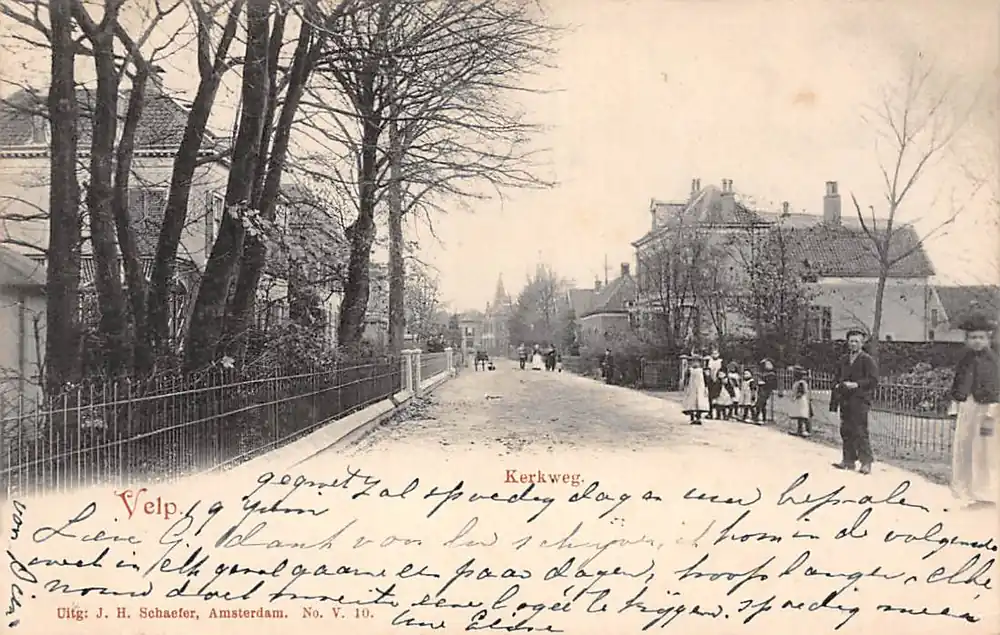 Kerkweg.
Velp. 19 gegroet zal spoedig dag en uur bepalen.
Lieve G, dank voor de schrijven, ik kom in de volgende
week in elk geval gaarne een paar dagen, hoop langer, elke
doet moeite een logée te krijgen. Spoedig meer
Uitg: J. H. Schaefer, Amsterdam. No. V. 10.
van